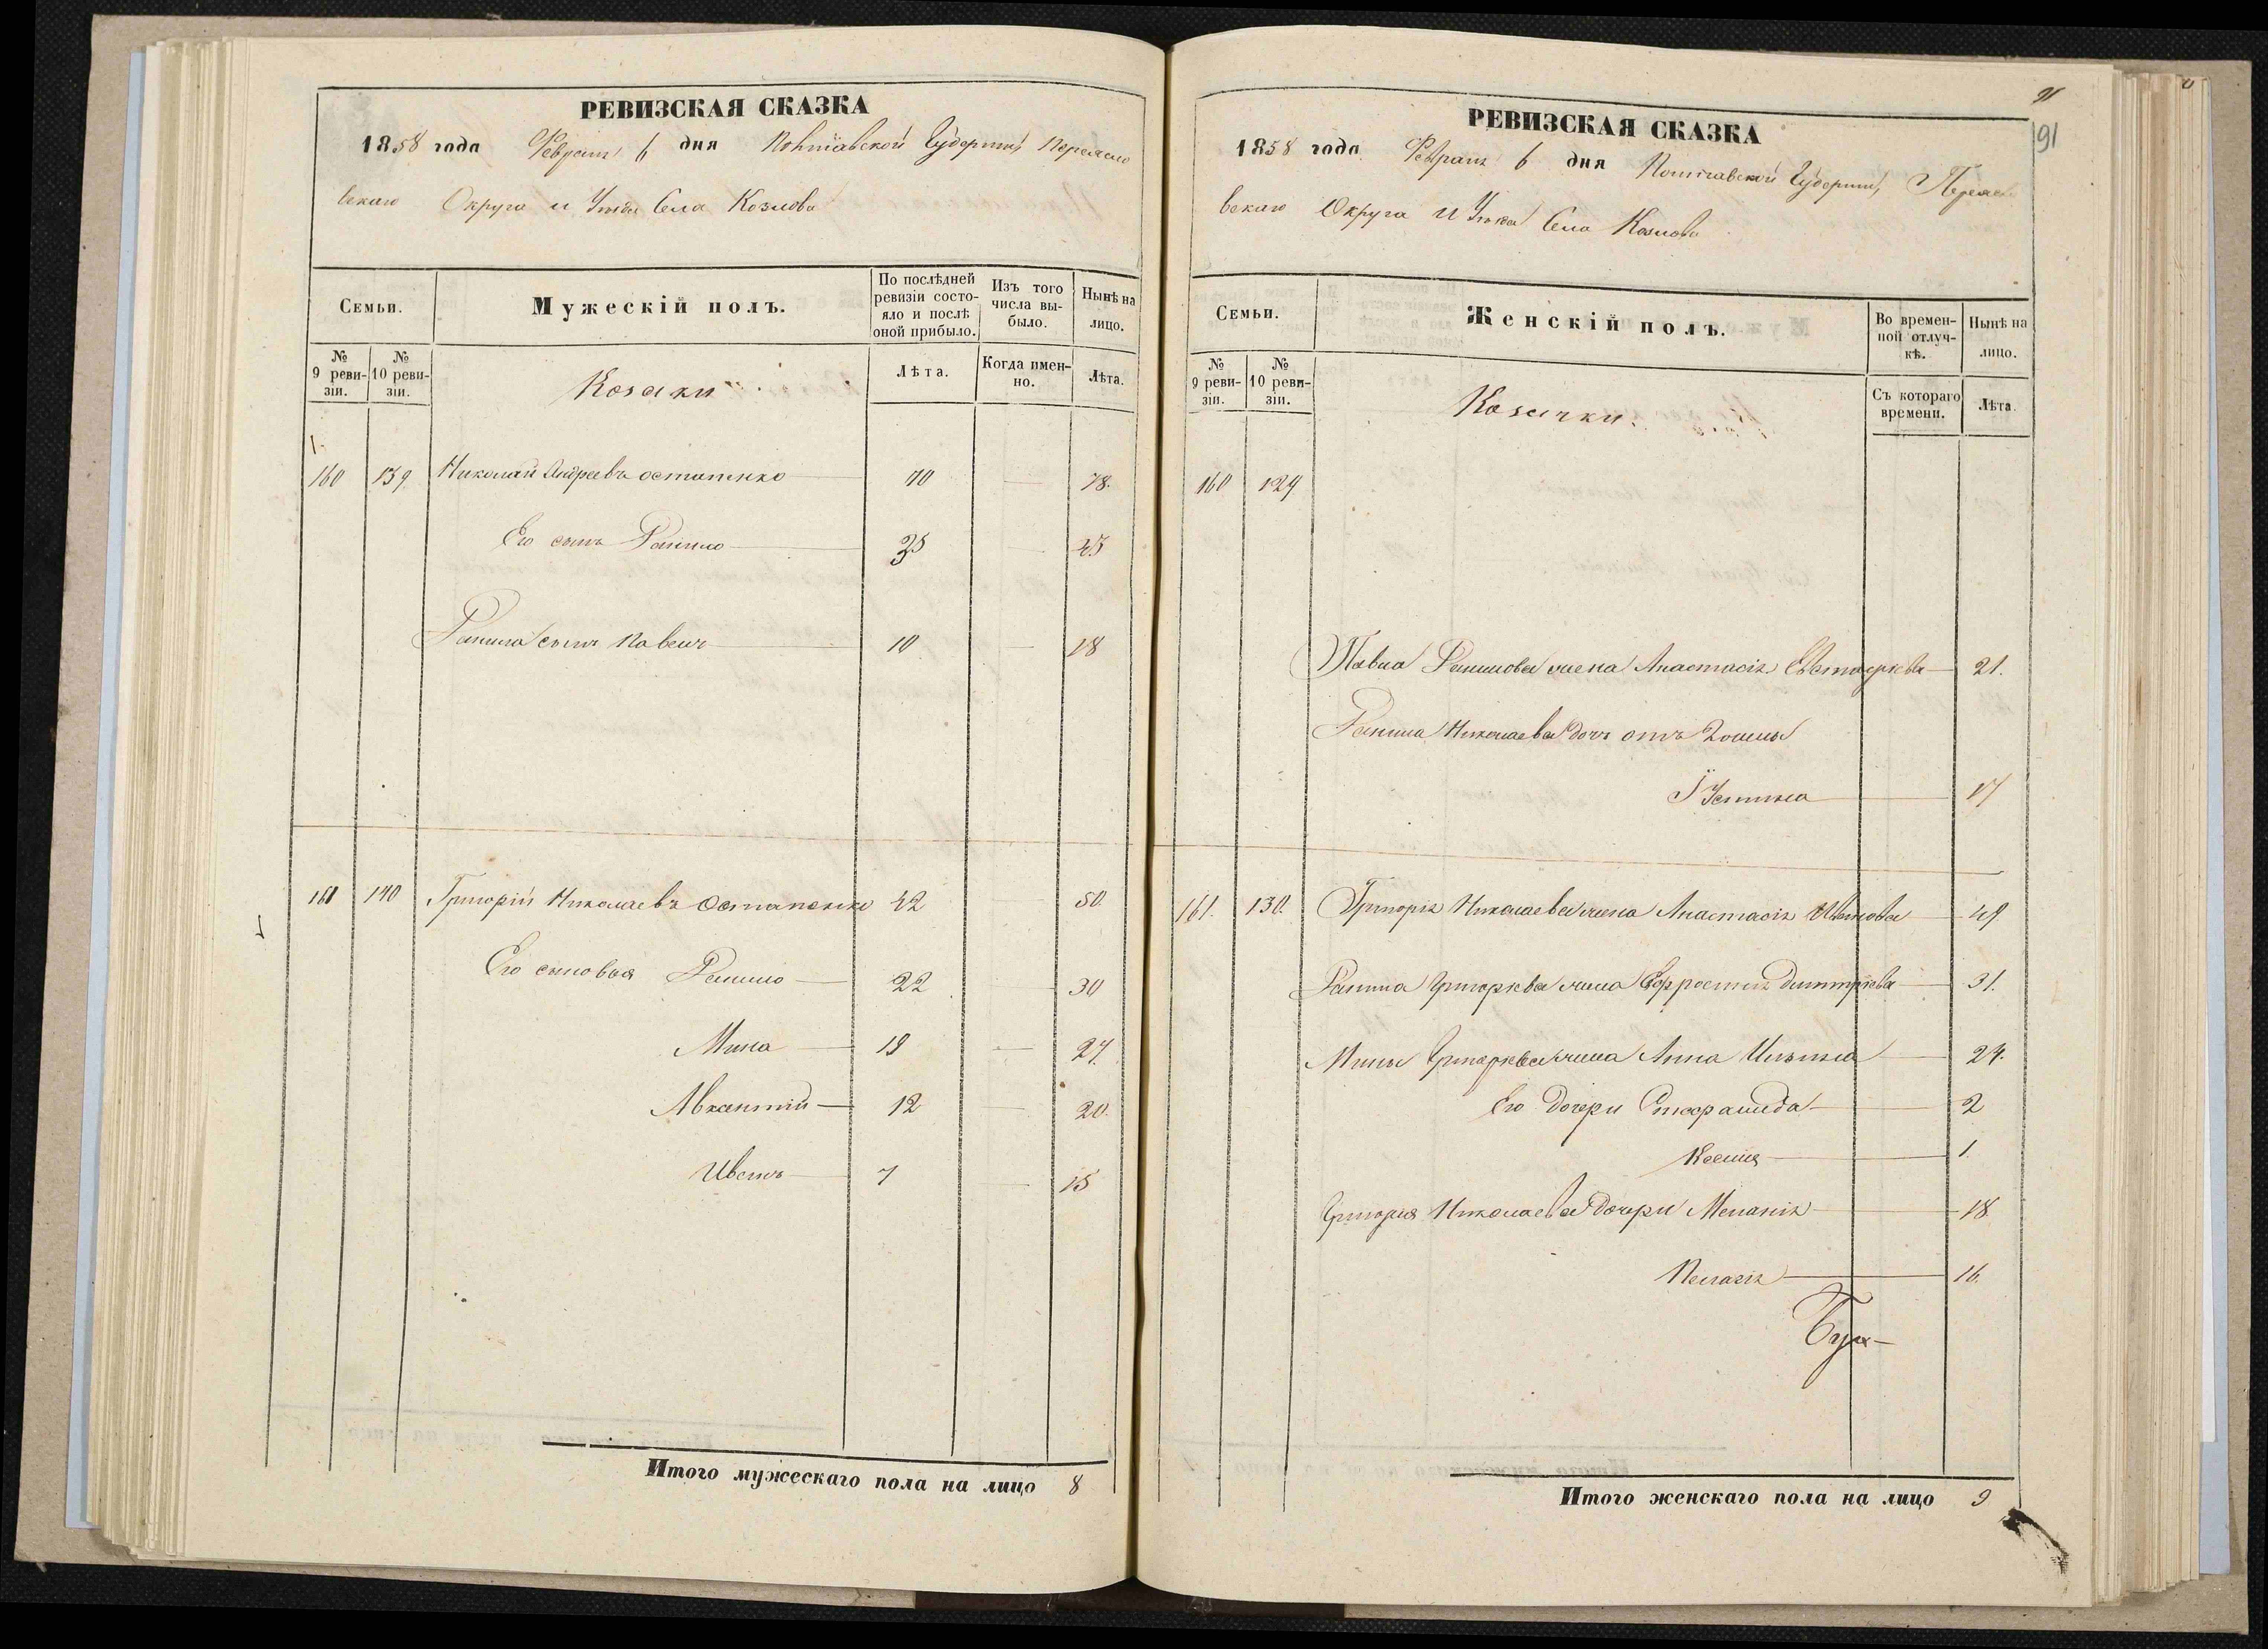 РЕВИЗСКАЯ СКАЗКА
1858 года Февраля 6 дня Полтавской Губернии Переясло
вскаго Округа и Уезда Села Козлова
Семьи.
Мужескій полъ.
По послѣдней ревизіи состояло и послѣ оной прибыло.
Изъ того числа выбыло.
Нынѣ на лицо.
№ 9 ревизіи.
№ 10 ревизіи.
Козаки
Лѣта.
Когда именно.
Лѣта.
160 139 Николай Андреевъ остапенко 70 — 78.
Его сынъ Данило 35 — 43
Данила сынъ Павелъ 10 — 18
161 140 Григорій Николаевъ Остапенко 42 50.
Его сыновья Данило 22 30
Мина 19 — 27.
Авксентий 12 — 20.
Иванъ 7 — 15
Итого мужескаго пола на лицо 8
91
91
РЕВИЗСКАЯ СКАЗКА
1858 года Февраля 6 дня Полтавской Губернии, Переясло
вскаго Округа и Уезда Села Козлова
Семьи.
Женскій полъ.
Во временной отлучкѣ.
Нынѣ на лицо.
№ 9 ревизіи.
№ 10 ревизіи.
Козачки.
Съ котораго времени.
Лѣта.
160 129
Павла Данилова жена Анастасія 21.
Данила Николаева дочь отъ
Устинна 17
161. 130. Григорія Николаева жена Анастасія Иванова 49
Данила Григорьева жена Ефросинія Дмитріева 31.
Мины Григорьева жена Анна Ильина 24.
Его дочери Стефанида 2
Ксенія 1.
Григорія Николаева дочери Меланія 18
Пелагія 16.
Итого женскаго пола на лицо 9